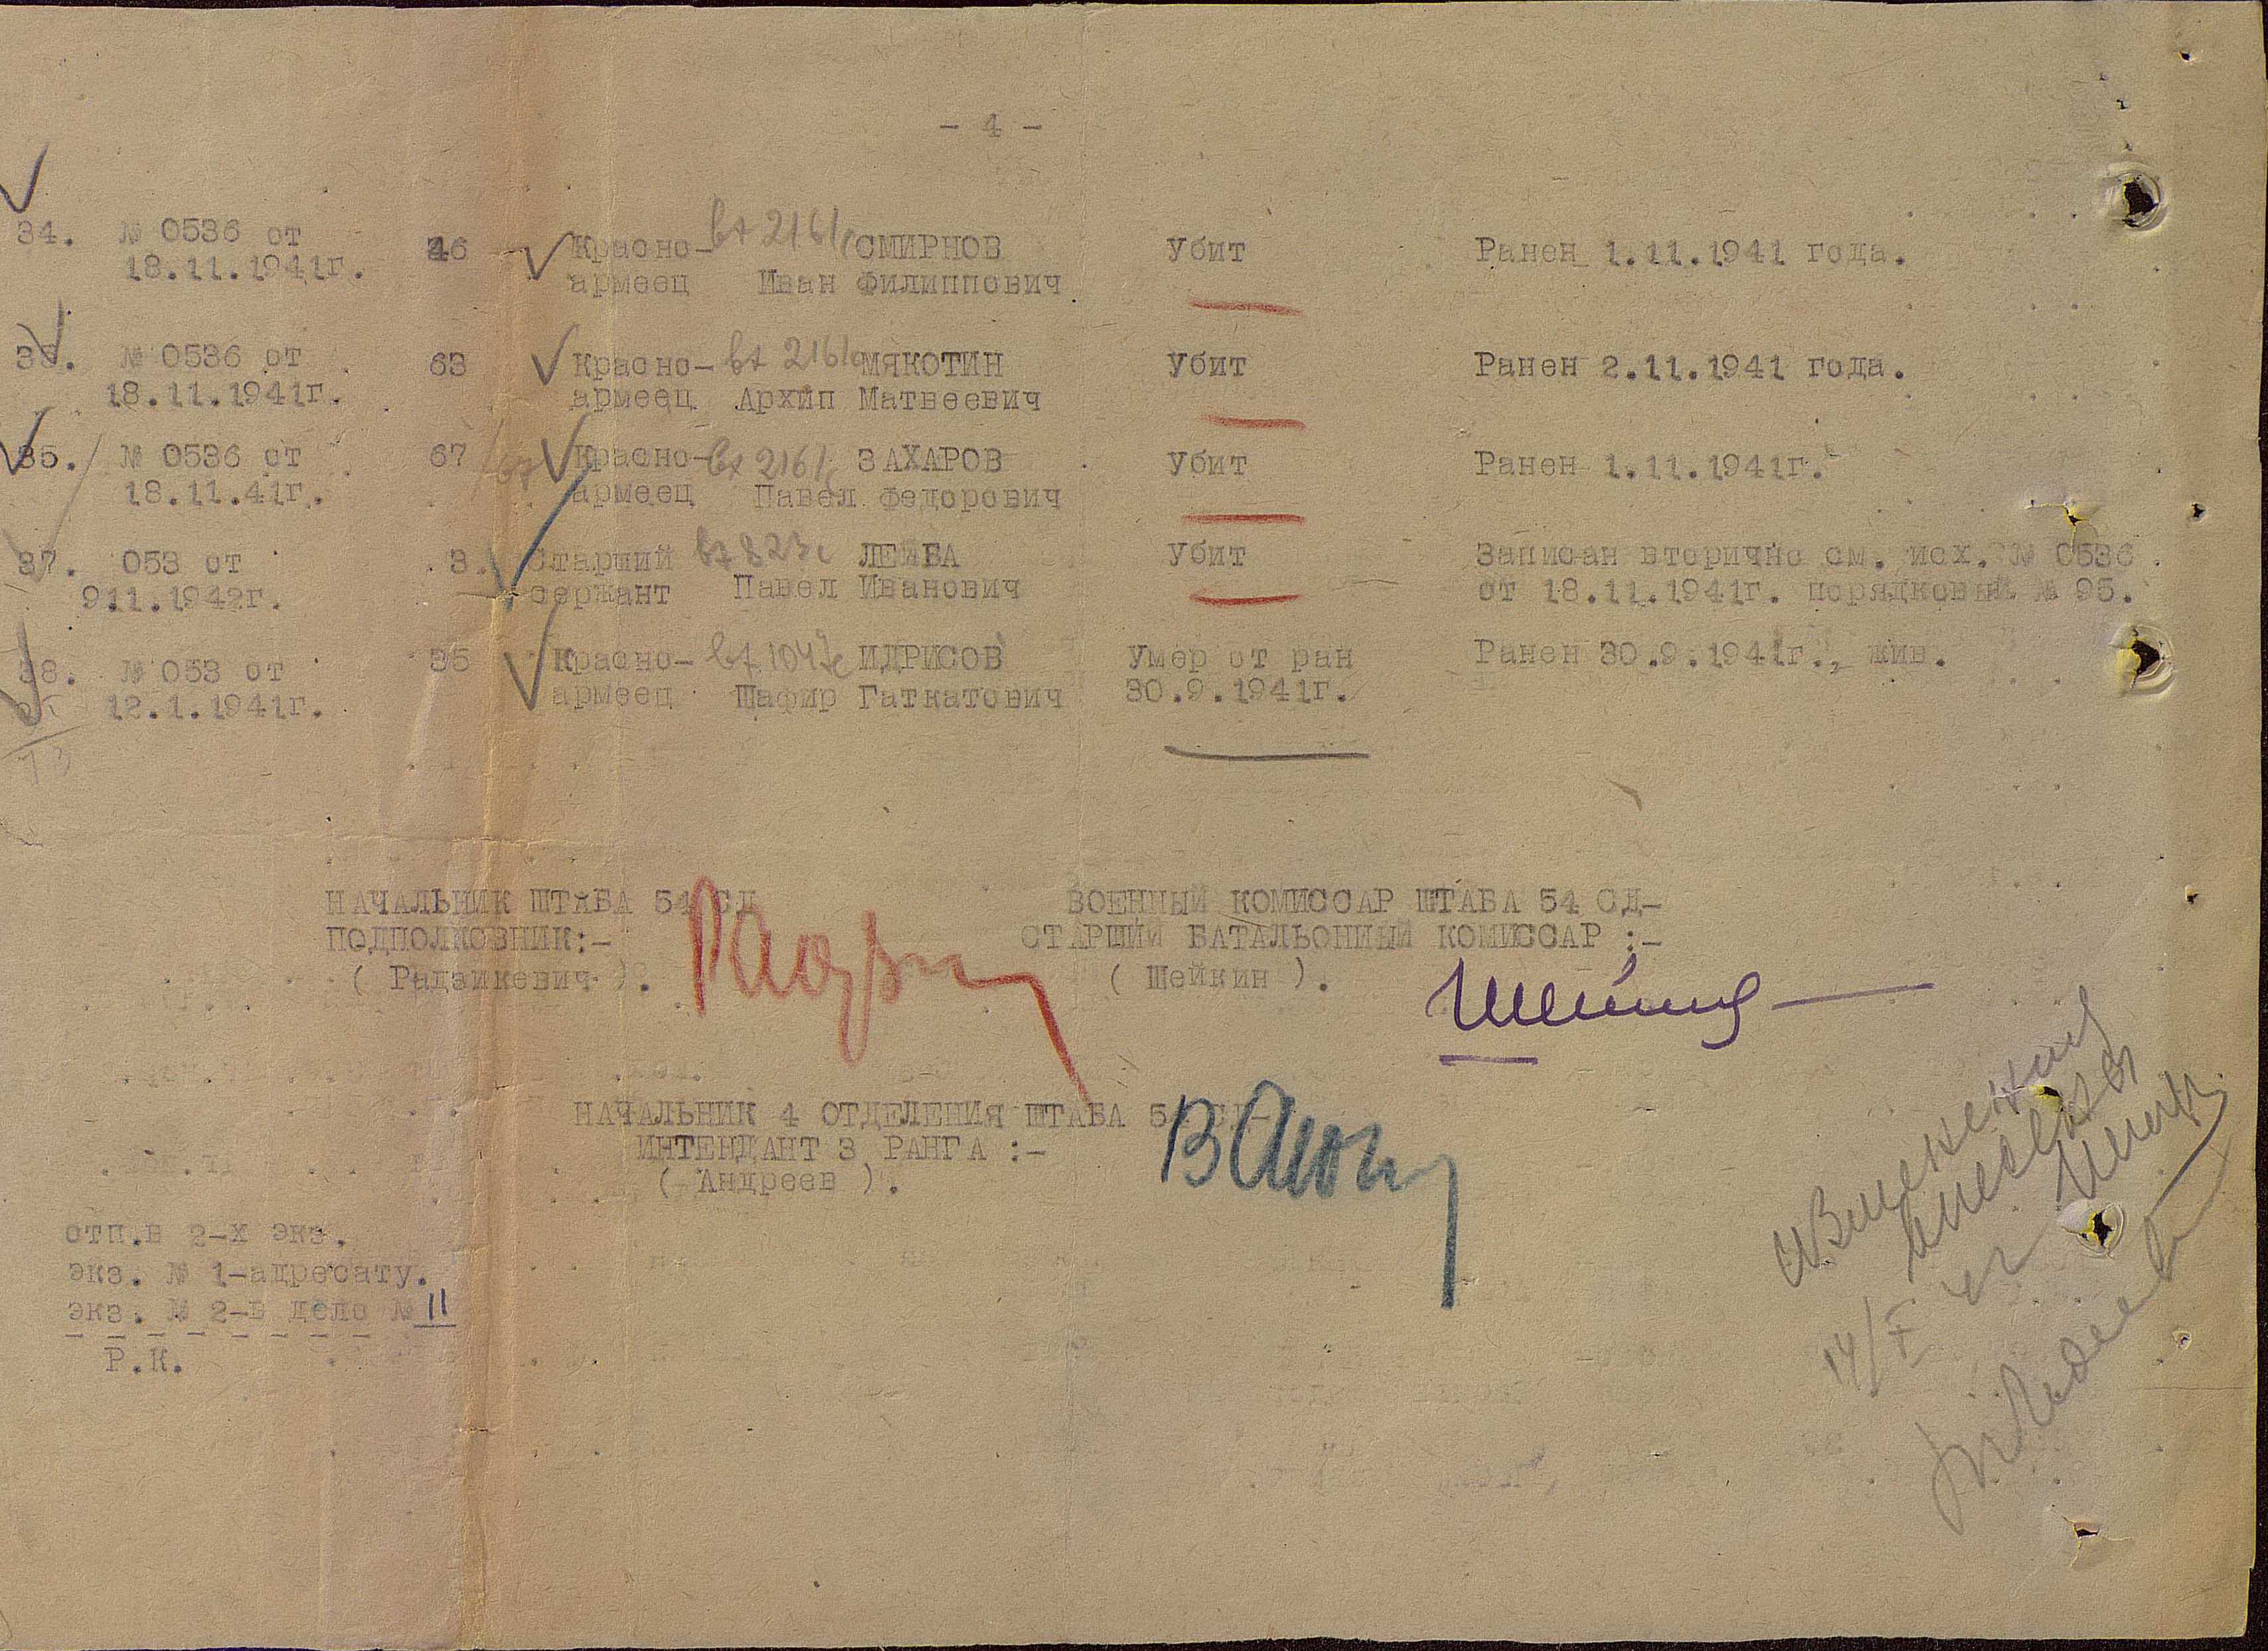 - 4 -
34. № 0536 от 46 Красно- СМИРНОВ Убит Ранен 1.11.1941 года.
18.11.1941г. армеец Иван Филиппович
36. № 0536 от 63 Красно- МЯКОТИН Убит Ранен 2.11.1941 года.
18.11.1941г. армеец Архип Матвеевич
35. № 0536 от 67 Красно- ЗАХАРОВ Убит Ранен 1.11.1941г.
18.11.41г. армеец Павел Федорович
37. 053 от 3. Старший ЛЕЙБА Убит Записан вторично см. исх. № 0536
911.1942г. сержант Павел Иванович от 18.11.1941г. порядковый № 95.
38. № 053 от 35 Красно- ИДРИСОВ Умер от ран Ранен 30.9.1941г., жив.
12.1.1941г. армеец Шафир Гаткатович 30.9.1941г.
НАЧАЛЬНИК ШТАБА 54 СД ВОЕННЫЙ КОМИССАР ШТАБА 54 СД-
ПОДПОЛКОВНИК:- СТАРШИЙ БАТАЛЬОННЫЙ КОМИССАР :-
( Радзикевич ). ( Шейкин ).
НАЧАЛЬНИК 4 ОТДЕЛЕНИЯ ШТАБА 54 СД-
ИНТЕНДАНТ 3 РАНГА :-
( Андреев ).
отп.в 2-х экз.
экз. № 1-адресату.
экз. № 2-в дело № 11
Р.К.